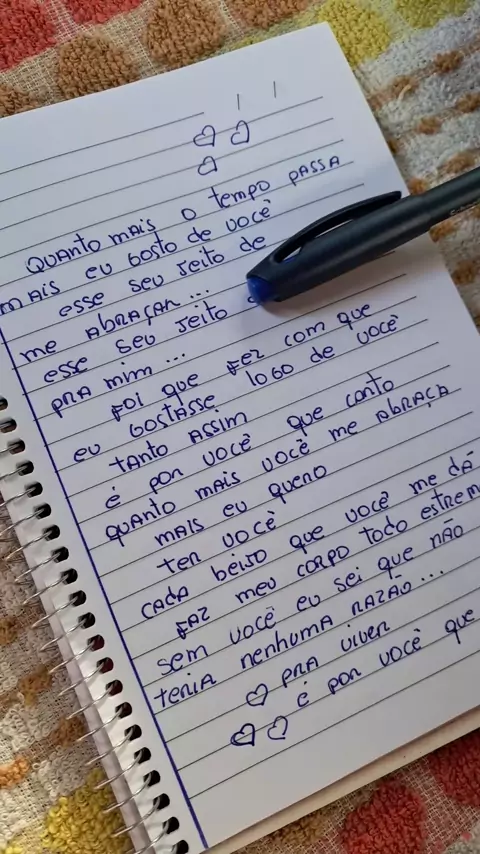 Quanto mais o tempo passa
mais eu gosto de você
esse seu jeito de
me abraçar...
esse seu jeito
pra mim...
Foi que fez com que
eu gostasse logo de você
tanto assim
é por você que canto
quanto mais você me abraça
mais eu quero
ter você
cada beijo que você me dá
faz meu corpo todo estrem
sem você eu sei que não
teria nenhuma razão...
pra viver
é por você que